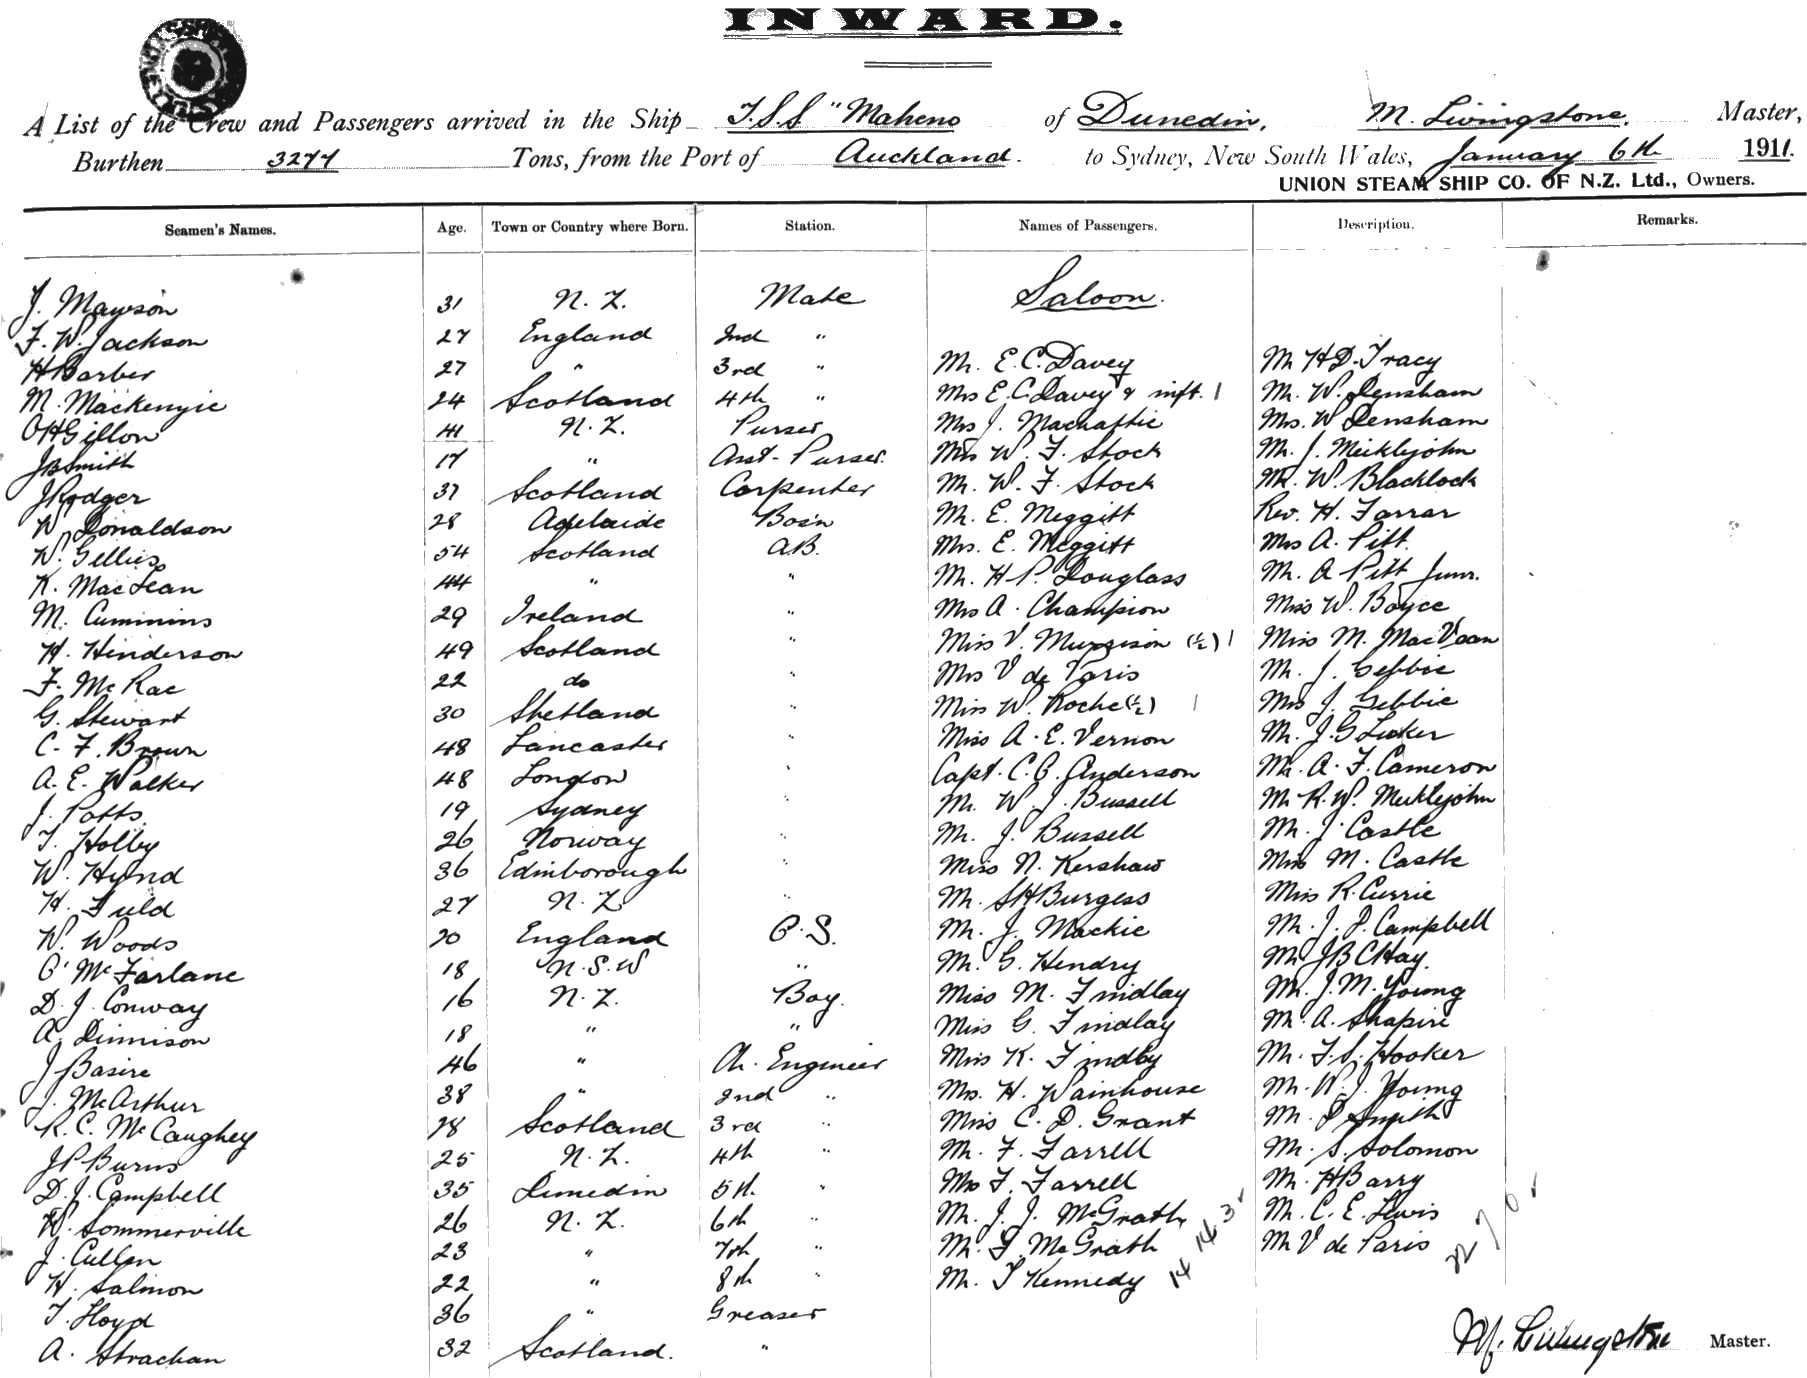 INWARD.
A List of the Crew and Passengers arrived in the Ship T.S.S "Maheno of Dunedin, M. Livingstone, Master,
Burthen 3277 Tons, from the Port of Auckland. to Sydney, New South Wales, January 6th 1911.
UNION STEAM SHIP CO. OF N.Z. Ltd., Owners.
Seamen's Names. Age. Town or Country where Born. Station. Names of Passengers. Description. Remarks.
J. Mawson 31 N. Z. Mate Saloon.
F. W. Jackson 27 England 2nd "
H Barber 27 " 3rd " Mr. E. C. Davey Mr H D. Tracy
M. Mackenzie 24 Scotland 4th " Mrs E. C Davey & inft. 1 Mr. W. Densham
O H Gillon 41 N. Z. Purser Mrs J. Machattie Mrs. W Densham
J B Smith 17 " Asst. Purser. W. F. Stock Mr. J. Meiklejohn
J Rodger 37 Scotland Carpenter Mr. W. F. Stock Mr. W. Blacklock
W. Donaldson 28 Adelaide Bos'n Mr. E. Meggitt Rev. H. Farrar
W. Gellies 54 Scotland A.B. Mrs. E. Meggitt Mrs A. Pitt.
K. MacLean 44 " " Mr. H P. Douglass Mr. A Pitt Junr.
M. Cummins 29 Ireland " Mrs A. Champion Miss W. Boyce
H. Henderson 49 Scotland " Miss V. Murgison (½) 1 Miss M. MacVean
F. McRae 22 do " Mrs V de Paris Mr. J. Gebbie
G. Stewart 30 Shetland " Miss W. Roche (½) 1 Mrs J. Gebbie
C. F. Brown 48 Lancaster " Miss A. E. Vernon Mr. J. G
A. E. Walker 48 London " Capt. C. G. Anderson Mr. A. F. Cameron
J. Potts. 19 Sydney " Mr. W. J. Bussell Mr R. W. Meiklejohn
T. Holby 26 Norway " Mr. J. Bussell Mr. J. Castle
W. Hynd 36 Edinborough " Miss N. Kershaw Miss M. Castle
H. Fuld 27 N. Z " Mr. S H Burgess Miss R. Currie
W. Woods 20 England O. S. Mr. J. Mackie Mr. J. P. Campbell
McFarlane 18 N. S. W " Mr. G. Hendry Mr J B C Hay.
D. J. Conway 16 N. Z. Boy. Miss M. Findlay Mr. J. M. Young
A. Dinnison 18 " " Miss G. Findlay Mr. A. Shapire
J Basire 46 " Ch. Engineer Miss K. Findlay Mr. F. S. Hooker
J. McArthur 38 " 2nd " Mrs. H. Wainhouse Mr. W. J. Young
R. C. McCaughey 28 Scotland 3rd " Miss C. D. Grant Mr. Smyth
J P Burns 25 N. Z. 4th " Mr. F. Farrell Mr. S. Solomon
D. J. Campbell 35 Dunedin 5th. " Mrs F. Farrell Mr. H Barry
W. Sommerville 26 N. Z. 6th " Mr. J. J. McGrath Mr. C. E. Lewis
J. Cullen 23 " 7th " Mr. McGrath Mr V de Paris
H. Salmon 22 " 8th " Mr. T Kennedy 14 14 3 22 7 0
T. Lloyd 36 " Greaser
A. Strachan 32 Scotland. "
M. Livingstone Master.